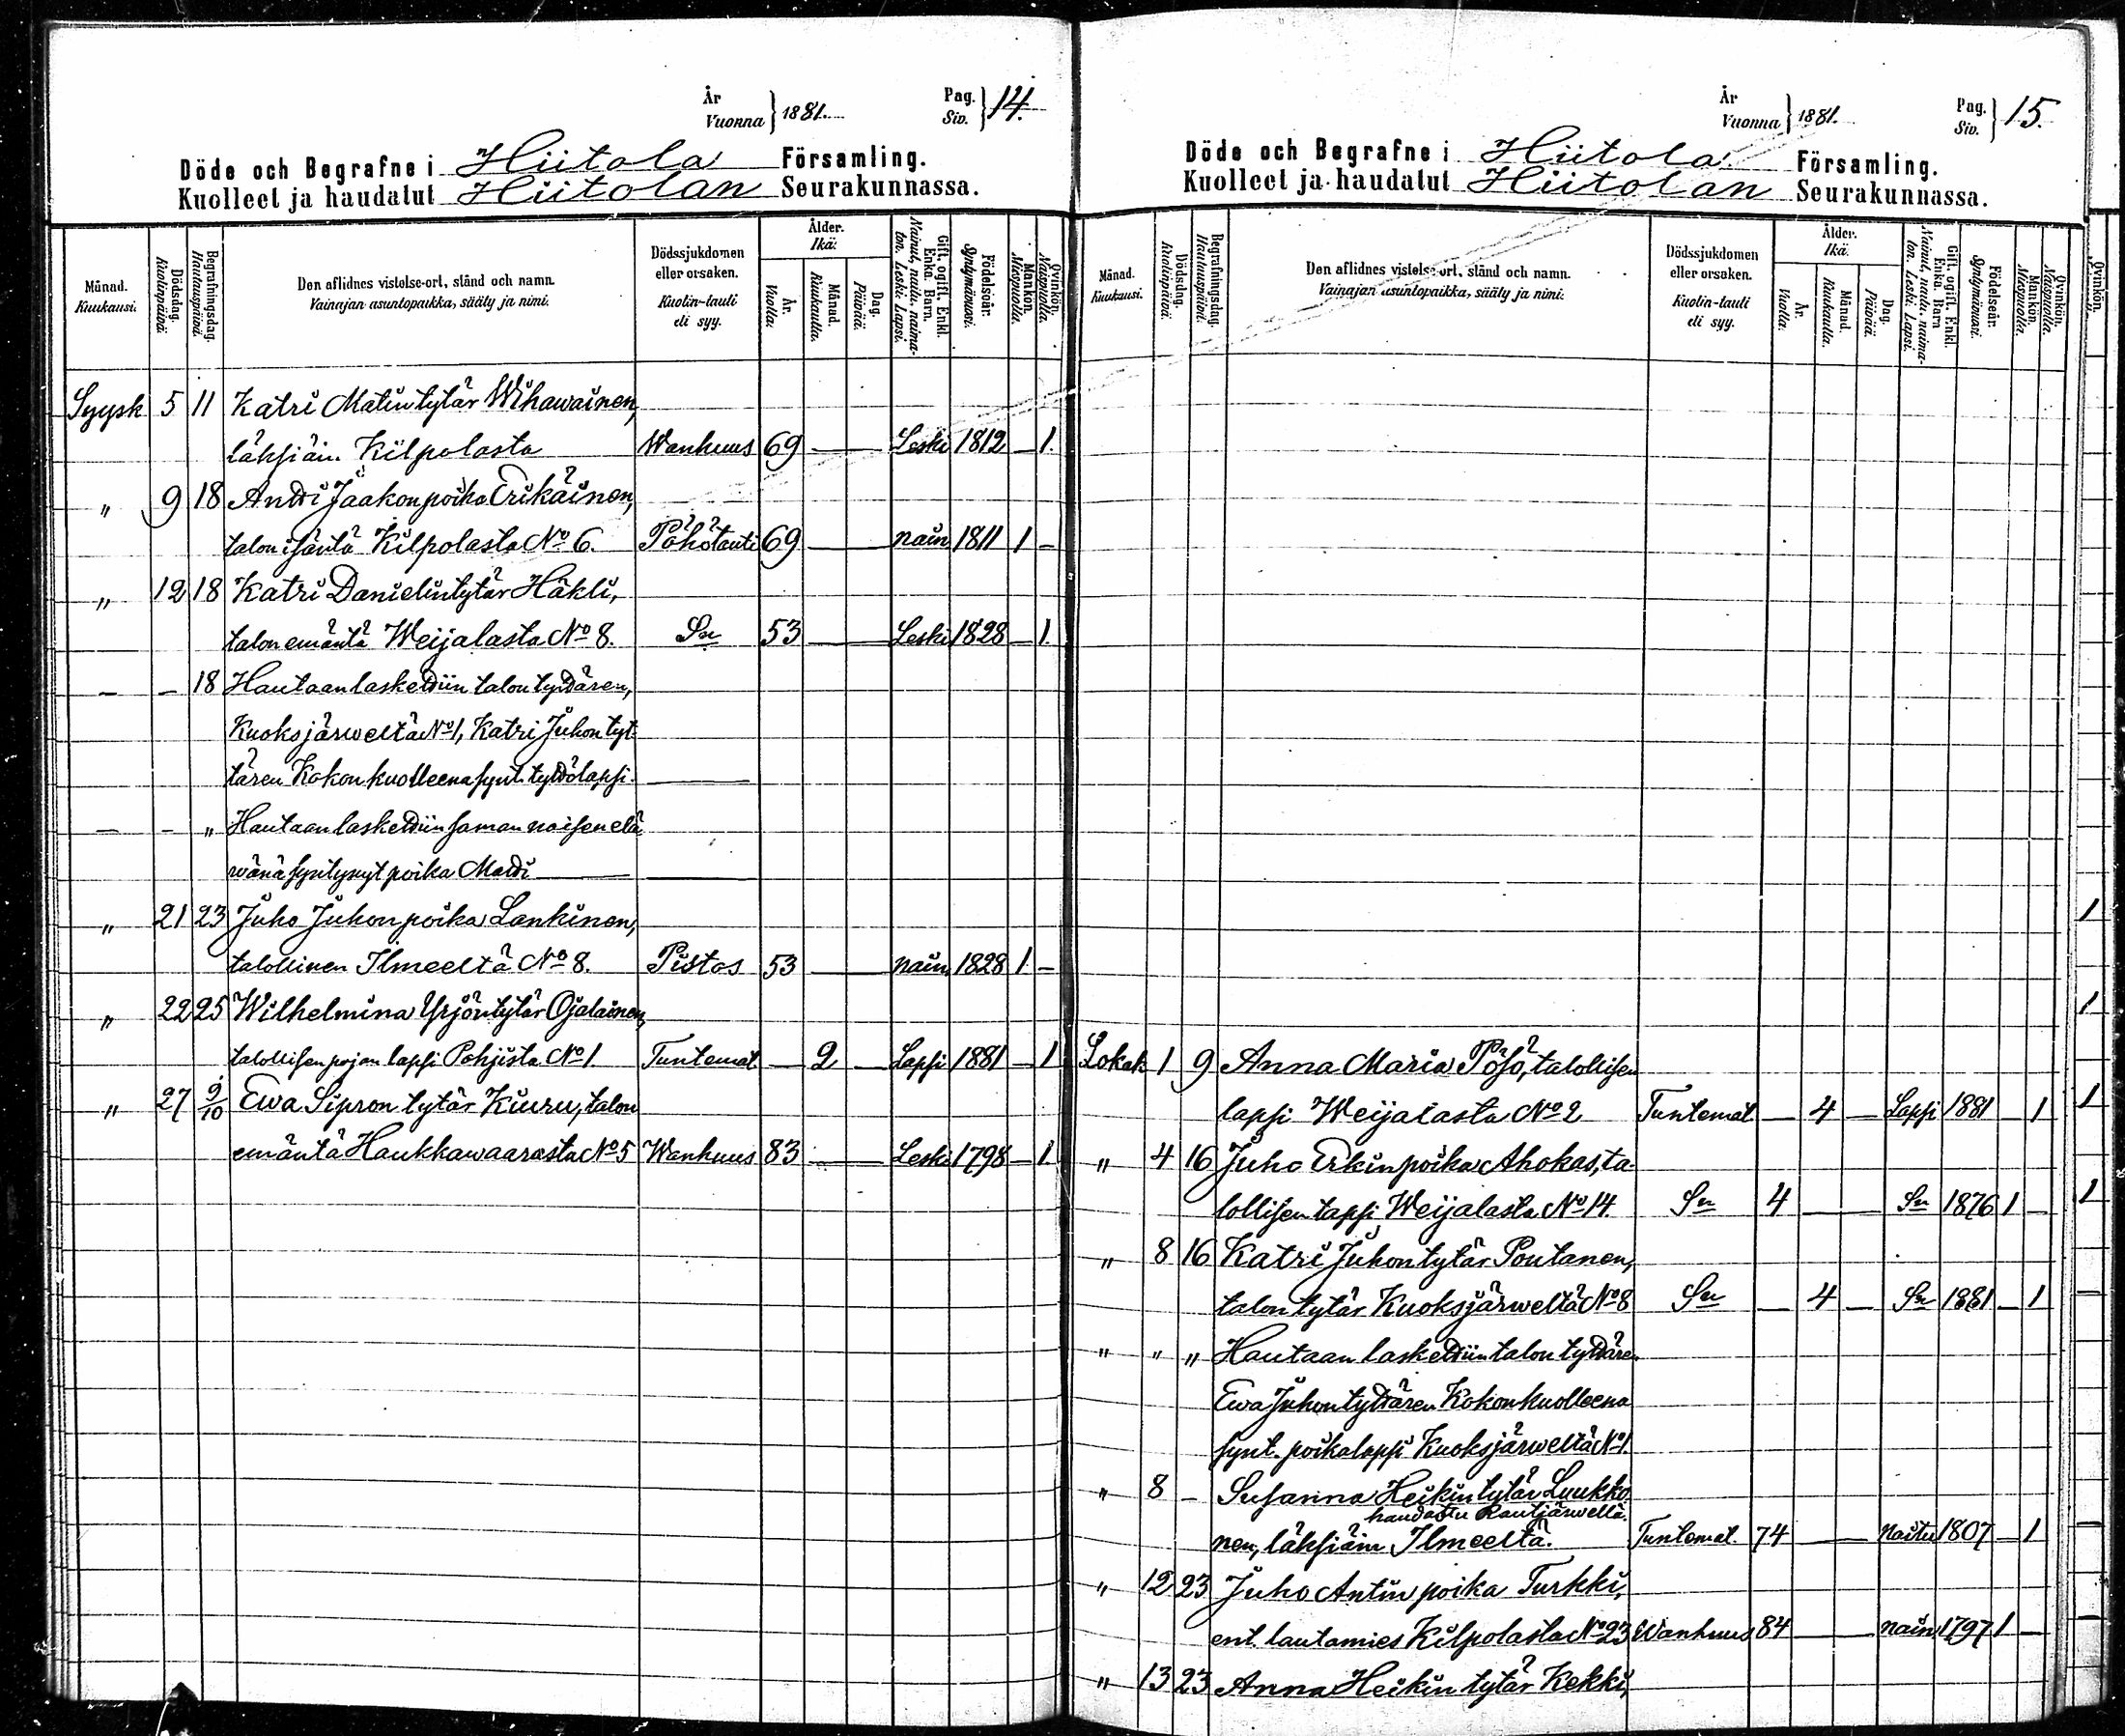 År
Vuonna } 1881.
Pag.
Siv. } 14.
Döde och Begrafne i Hiitola Församling.
Kuolleet ja haudatut Hiitolan Seurakunnassa.
Månad.
Kuukausi.
Dödsdag.
Kuolinpäivä.
Begrafningsdag.
Hautauspäivä.
Den aflidnes vistelse-ort, stånd och namn.
Vainajan asuntopaikka, sääty ja nimi.
Dödssjukdomen
eller orsaken.
Kuolin-tauti
eli syy.
Ålder.
Ikä:
År.
Vuotta.
Månad.
Kuukautta.
Dag.
Päivää.
Gift. ogift. Enkl.
Enka. Barn.
Nainut, naitu, naima-
ton. Leski. Lapsi.
Födelseår.
Syntymävuosi.
Mankön.
Miespuolia.
Qvinkön.
Naispuolia.
Syysk 5 11 Katri Matintytär Wihawainen,
läksiäin. Kilpolasta Wanhuus 69 — Leski 1812 — 1.
" 9 18 Antti Jaakonpoika Erikäinen,
talon isäntä Kilpolasta No 6. Pöhötauti 69 — nain 1811 1 –
" 12 18 Katri Danielintytär Häkli,
talon emäntä Weijalasta No 8. Sn 53 — Leski 1828 — 1.
– – 18 Hautaan laskettiin talon tyttären,
Kuoksjärweltä No 1, Katri Juhon tyt-
tären Kokon kuolleena synt. tyttölapsi. —
– – " Hautaan laskettiin saman naisen elä
wänä syntynyt poika Matti — —
" 21 23 Juho Juhonpoika Lankinen,
talollinen Ilmeeltä No 8. Pistos 53 — nain 1828 1 –
" 22 25 Wilhelmina Yrjöntytär Ojalainen,
talollisen pojan lapsi Pohjista No 1. Tuntemat — 2 — Lapsi 1881 — 1
" 27 9/10 Ewa Sipron tytär Kiuru, talon
emäntä Haukkawaarasta No 5 Wanhuus 83 — Leski 1798 — 1
År
Vuonna } 1881.
Pag.
Siv. } 15.
Döde och Begrafne i Hiitola Församling.
Kuolleet ja haudatut Hiitolan Seurakunnassa.
Månad.
Kuukausi.
Dödsdag.
Kuolinpäivä.
Begrafningsdag.
Hautauspäivä.
Den aflidnes vistelse-ort, stånd och namn.
Vainajan asuntopaikka, sääty ja nimi.
Dödssjukdomen
eller orsaken.
Kuolin-tauti
eli syy.
Ålder.
Ikä:
År.
Vuotta.
Månad.
Kuukautta.
Dag.
Päivää.
Gift. ogift. Enkl.
Enka. Barn
Nainut, naitu, naima-
ton. Leski. Lapsi.
Födelseår.
Syntymävuosi.
Mankön.
Miespuolia.
Qvinkön.
Naispuolia.
Lokak 1 9 Anna Maria Pösö, talollisen
lapsi Weijalasta No 2 Tuntemat — 4 — Lapsi 1881 — 1
" 4 16 Juho Erkinpoika Ahokas, ta-
lollisen lapsi Weijalasta No 14 Sn 4 — Sn 1876 1 —
" 8 16 Katri Juhontytär Poutanen,
talon tytär Kuoksjärweltä No 8 Sn — 4 — Sn 1881 — 1
" " " Hautaan laskettiin talon tyttären
Ewa Juhontyttären Kokon kuolleena
synt. poikalapsi Kuoksjärweltä No 1.
" 8 – Susanna Heikintytär Luukko-
haudattu Rautjärwellä.
nen, läksiäin Ilmeeltä. Tuntemat. 74 — naitu 1807 — 1
" 12 23 Juho Antinpoika Turkki,
ent. lautamies Kilpolasta No 23 Wanhuus 84 — nain 1797 1 —
" 13 23 Anna Heikintytär Kekki,
Qvinkön.
1
1
1
1